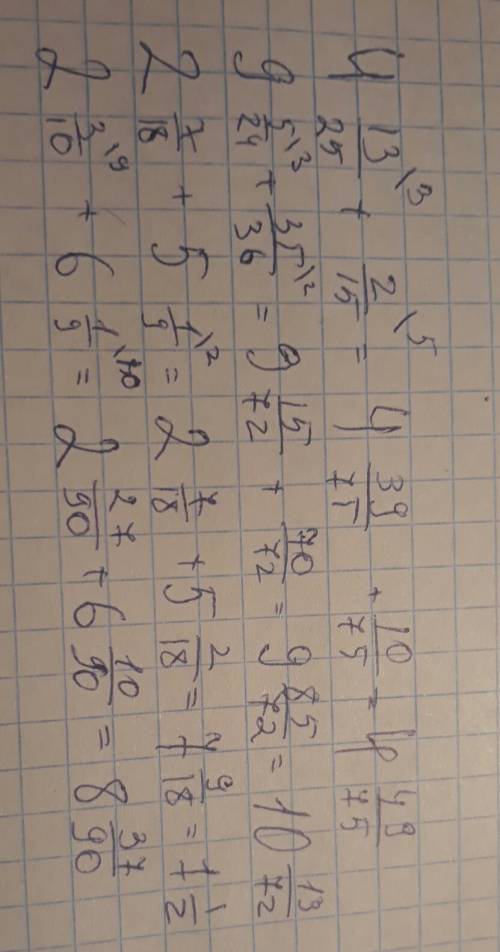 4 13/25 \3 + 2/15 \5 = 4 39/75 + 10/75 = 4 49/75
9 5/24 \3 + 35/36 \2 = 9 15/72 + 70/72 = 9 85/72 = 10 13/72
2 7/18 + 5 1/9 \2 = 2 7/18 + 5 2/18 = 7 9/18 = 7 1/2
2 3/10 \9 + 6 1/9 \10 = 2 27/90 + 6 10/90 = 8 37/90